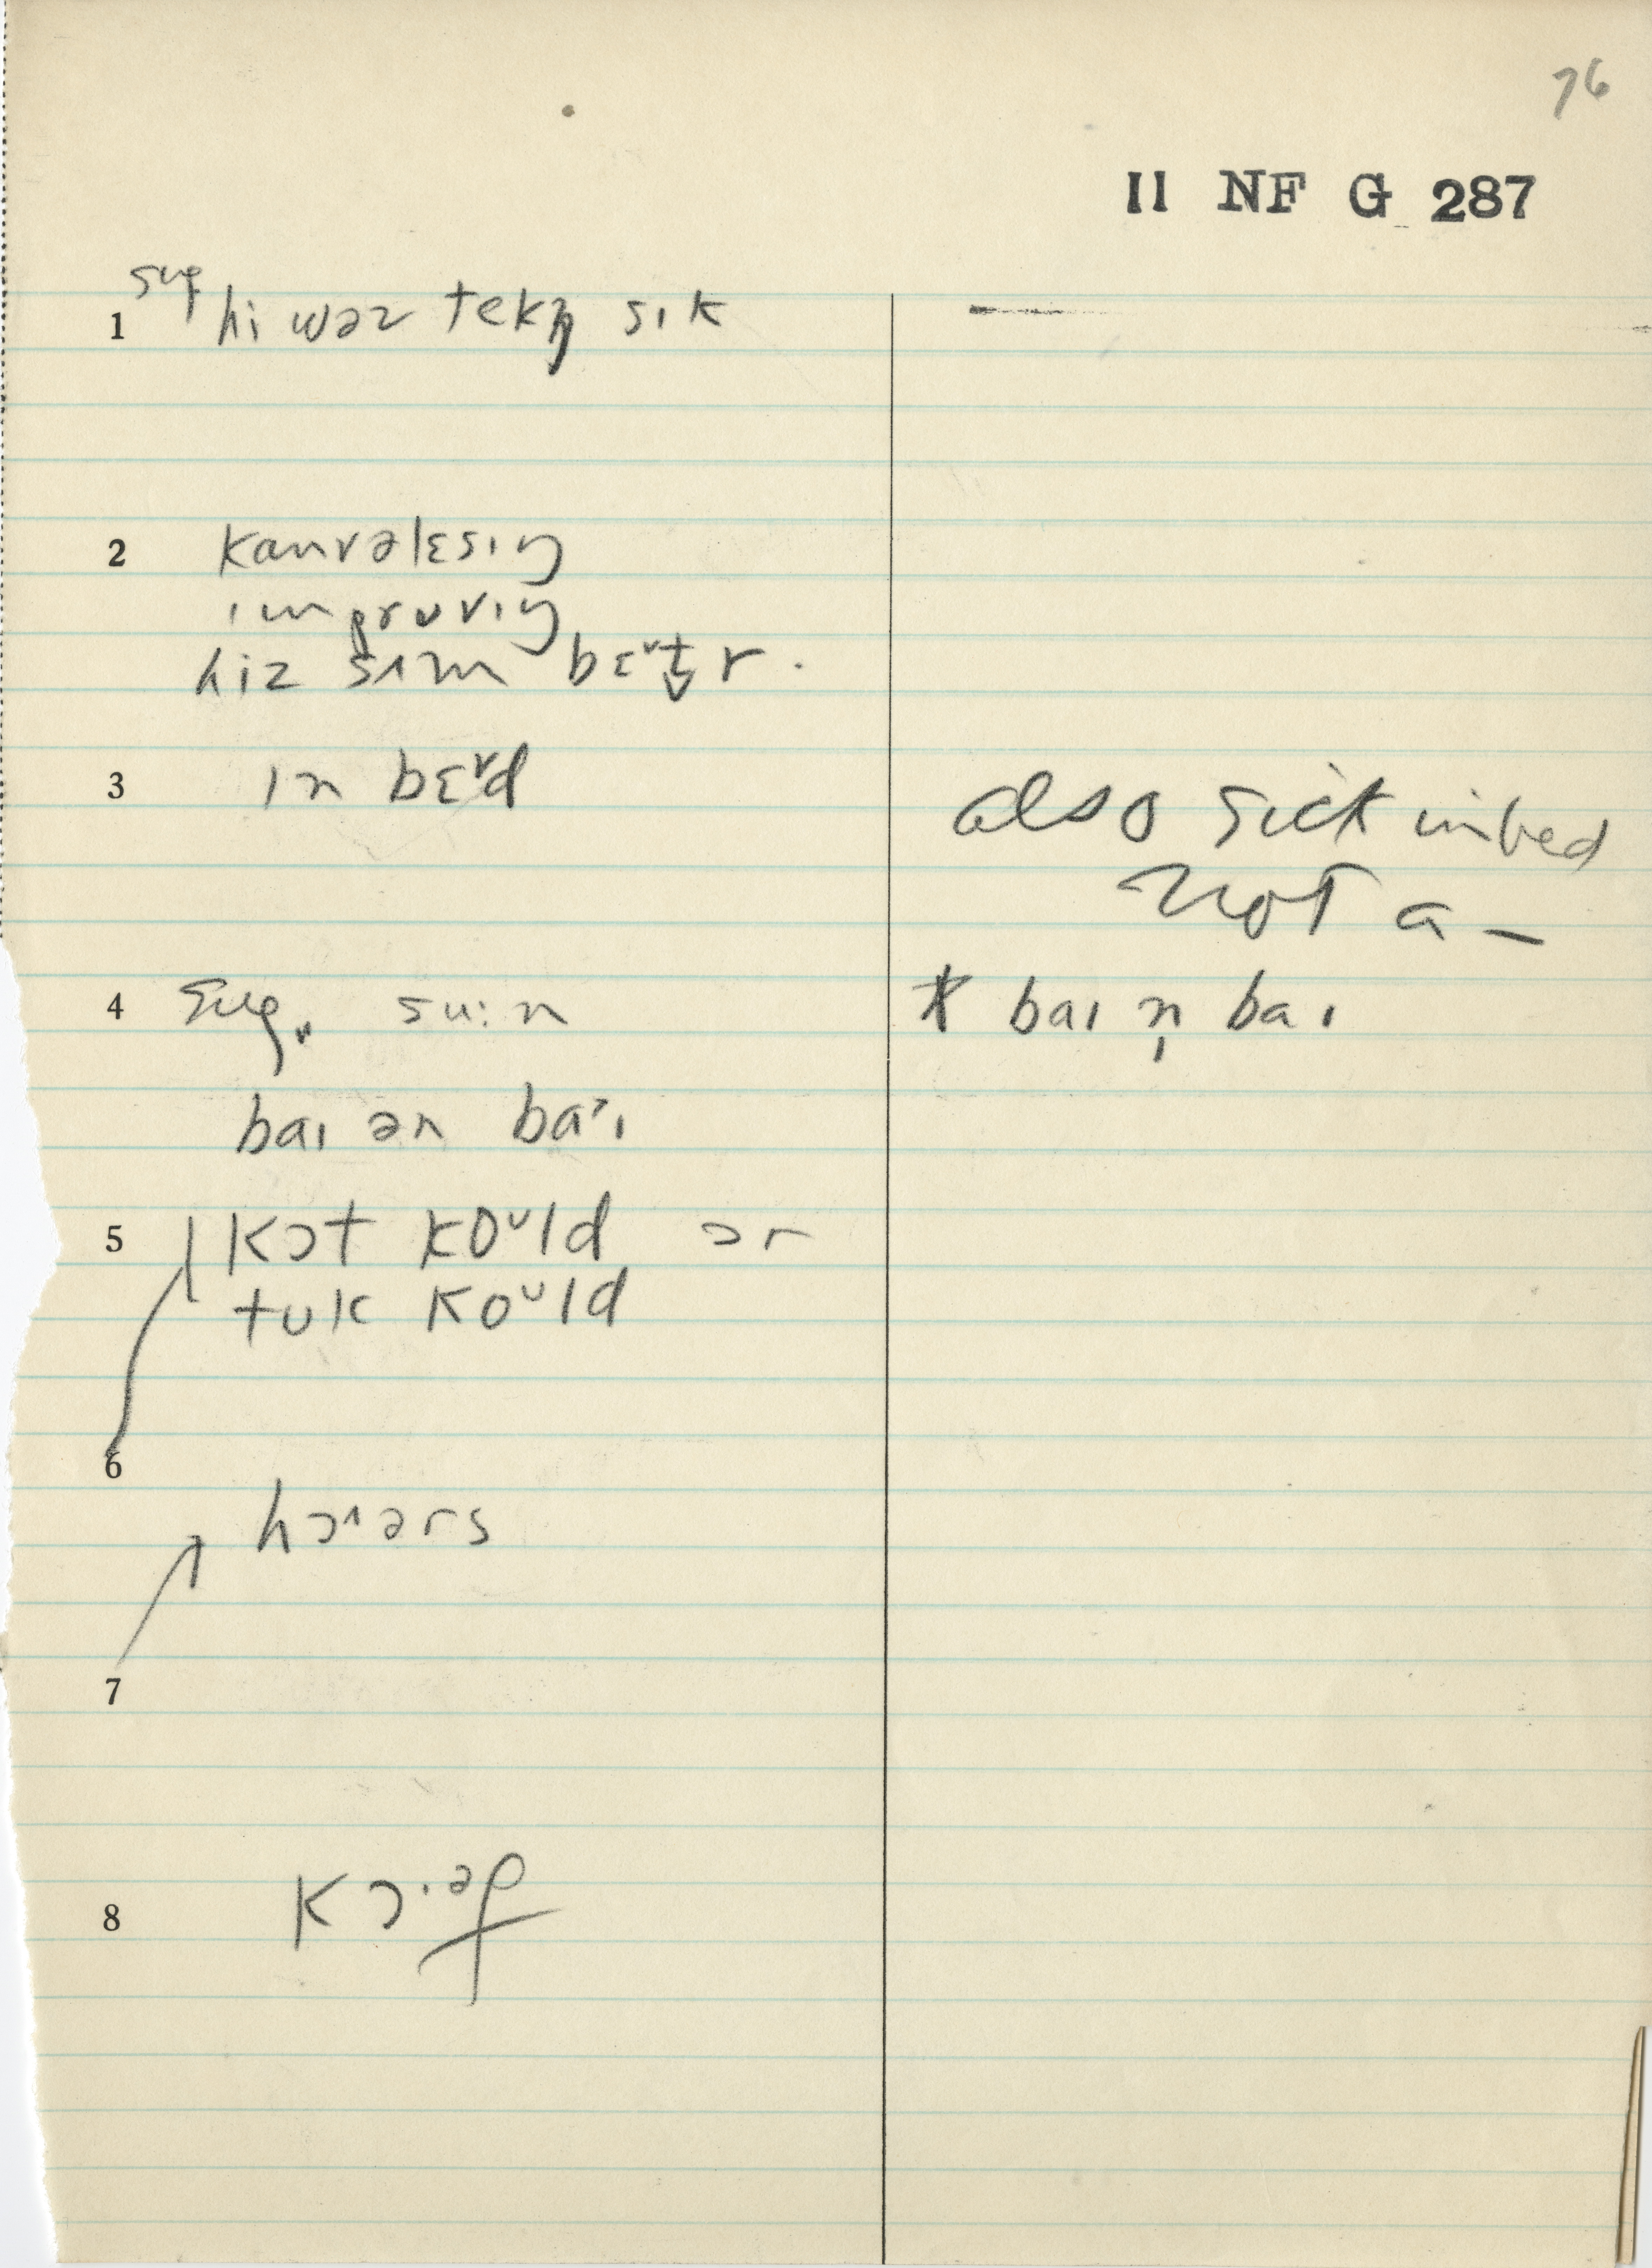 76
II NF G 287
1 sug hi wəz tekŋ sɪk —
2 kanvəlɛsɪŋ
ɪmpruvɪŋ
hiz sʌm bɛᵛt̬r.
3 ɪn bɛᵛd
also sick in bed
not a —
4 sug. su:n
* baɪ n̩ baɪ
baɪ ən baˑɪ
5 kɔt koᵁld ər
tuk koᵁld
6
hɔ^ərs
7
8 kɔ.əf